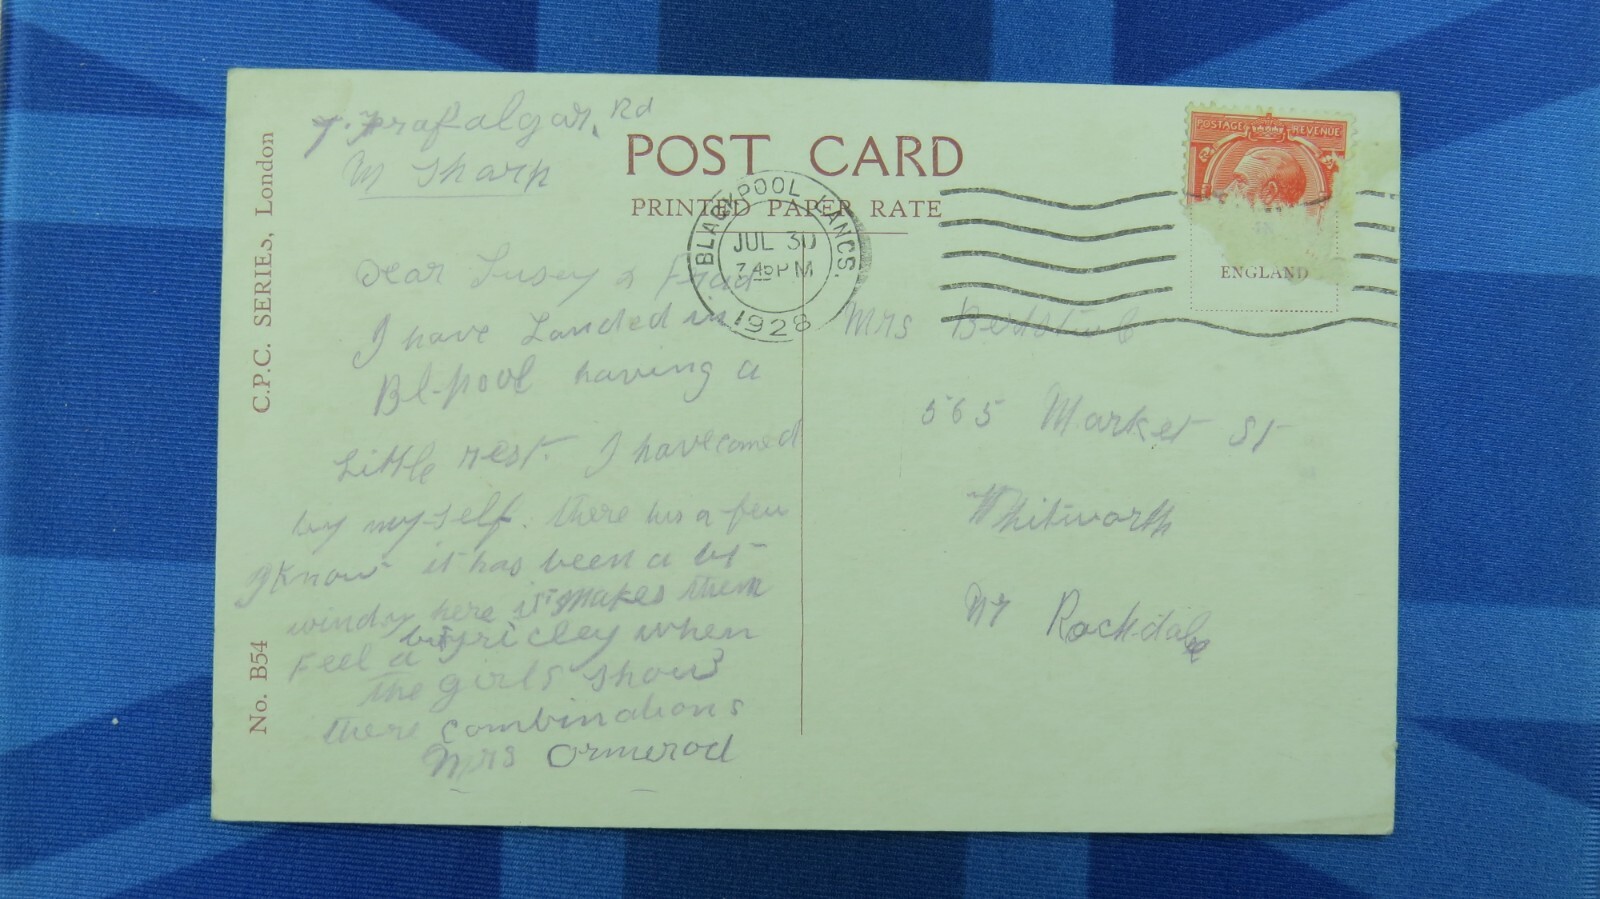 7. Trafalgar, Rd
M Sharp
POST CARD
PRINTED PAPER RATE
BLACKPOOL LANCS.
JUL 30
7.45 PM
1928
POSTAGE REVENUE
ENGLAND
C.P.C. SERIES, London
No. B54
Dear Lusey & Frad
I have Landed in
Bl-pool having a
Little rest. I have comed
by my-self. there his a few
I Know it has been a bit
windy here it makes them
Feel a bit when
the girls show
there combinations
Mrs Ormerod
Mrs
565 Market St
Whitworth
Nr Rochdale